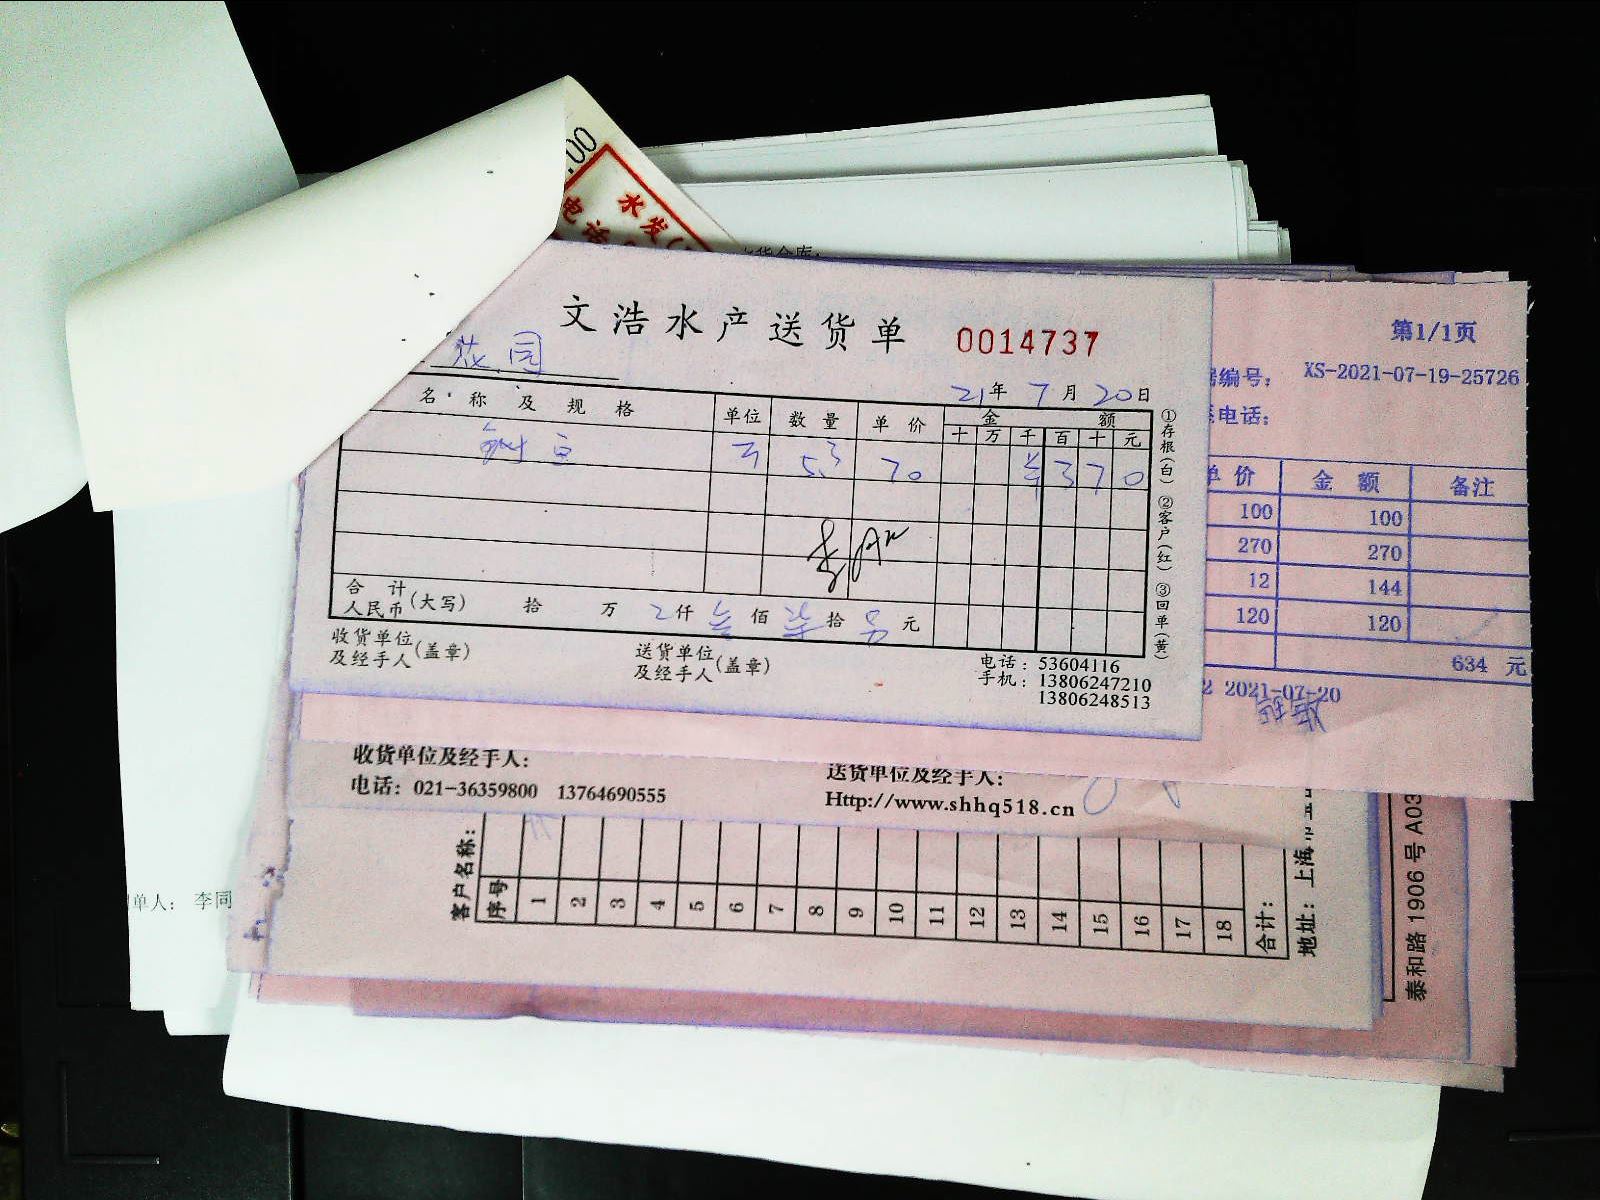 .00
水发
电话
文浩水产送货单 0014737
花园
21年7月20日
名称及规格 单位 数量 单价 金额
十万千百十元
5.3 70 ¥370
合计
人民币(大写) 拾 万 仟 叁佰 柒拾 另元
收货单位
及经手人(盖章)
送货单位
及经手人(盖章)
电话:53604116
手机:13806247210
13806248513
①存根(白) ②客户(红) ③回单(黄)
第1/1页
编号: XS-2021-07-19-25726
电话:
单价 金额 备注
100 100
270 270
12 144
120 120
634 元
2 2021-07-20
收货单位及经手人:
电话: 021-36359800 13764690555
送货单位及经手人:
Http://www.shhq518.cn
客户名称:
序号 1 2 3 4 5 6 7 8 9 10 11 12 13 14 15 16 17 18 合计:
地址: 上海
泰和路 1906 号 A03
单人: 李同